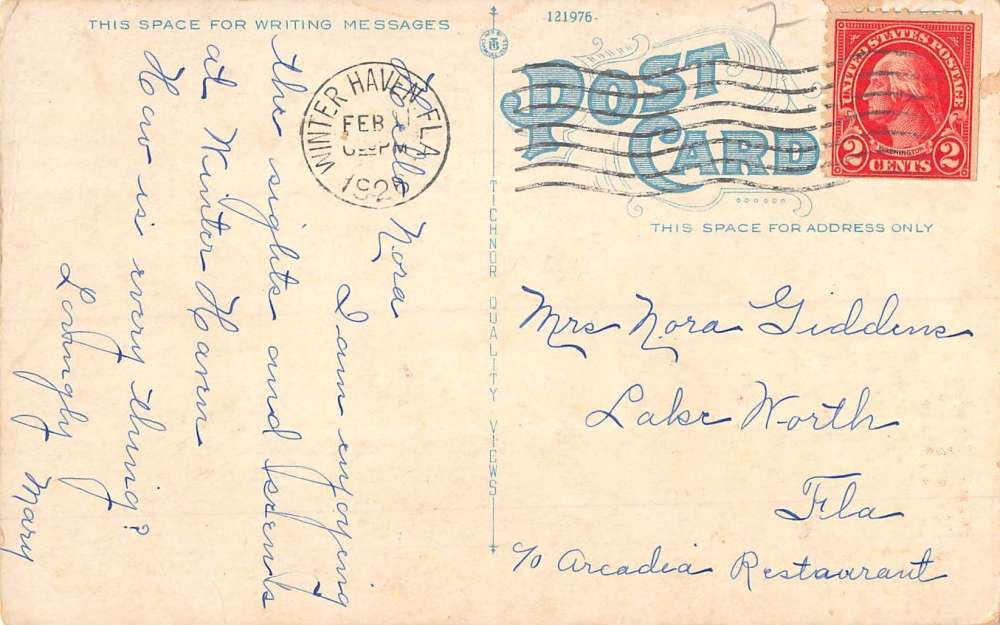 THIS SPACE FOR WRITING MESSAGES
Hello Nora
I am enjoying
the sights and events
at Winter Haven
How is every thing?
Lovingly
Mary
WINTER HAVEN, FLA.
FEB
PM
TICHNOR QUALITY VIEWS
121976
POST
CARD
UNITED STATES POSTAGE
WASHINGTON
2 CENTS 2
THIS SPACE FOR ADDRESS ONLY
Mrs Nora Giddens
Lake Worth
Fla
c/o Arcadia Restaurant